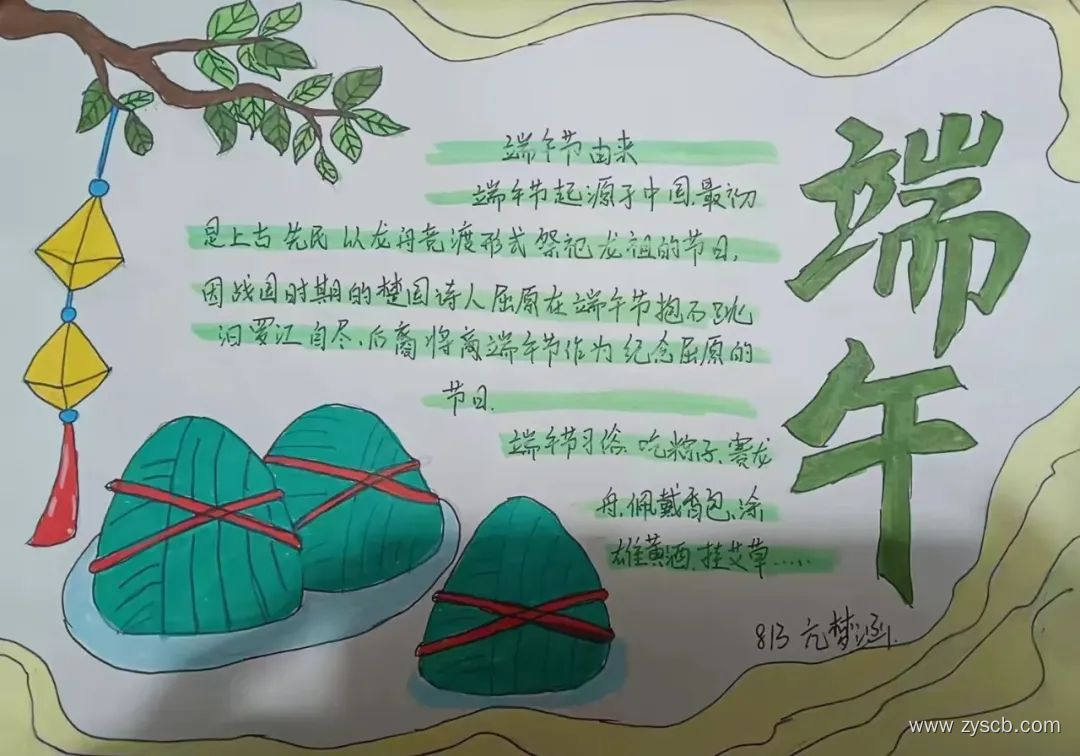 端午
端午节由来
端午节起源于中国,最初
是上古先民以龙舟竞渡形式祭祀龙祖的节日,
因战国时期的楚国诗人屈原在端午节抱石跳
汨罗江自尽,后裔将端午节作为纪念屈原的
节日.
端午节习俗 吃粽子、赛龙
舟、佩戴香包、涂
雄黄酒、挂艾草.....
813 亢梦涵.
www.zyscb.com